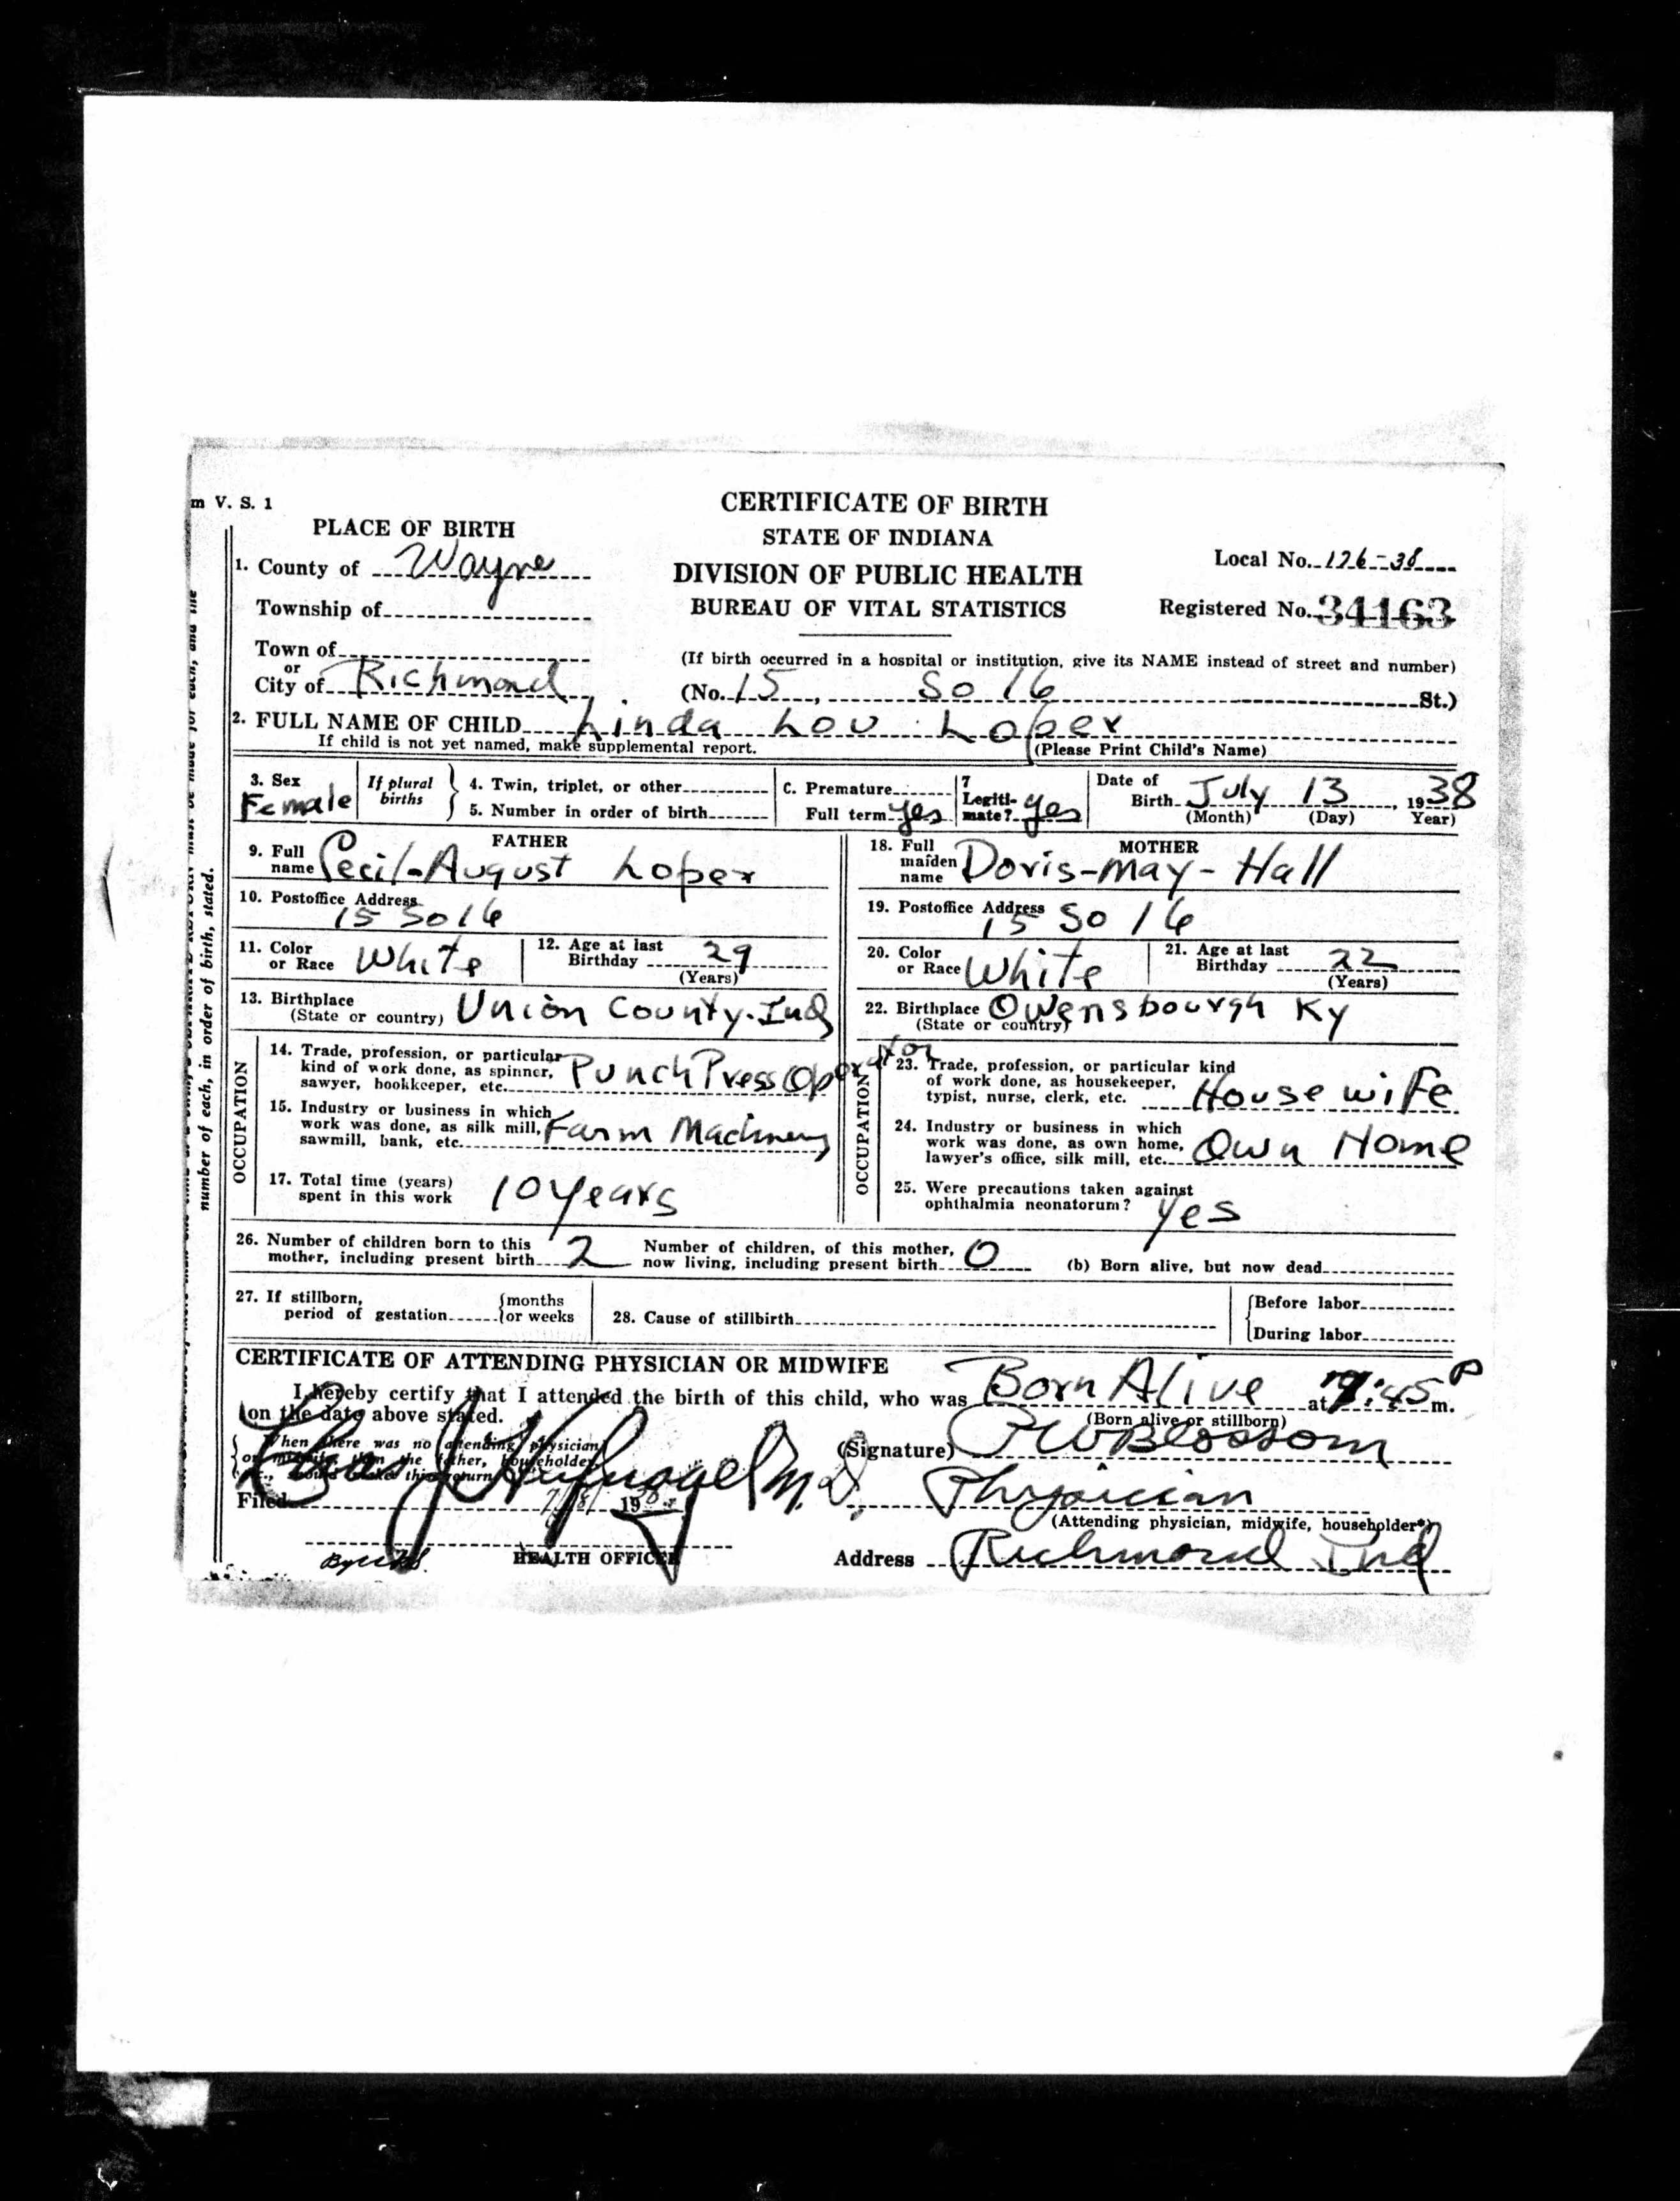 m V. S. 1
CERTIFICATE OF BIRTH
PLACE OF BIRTH
STATE OF INDIANA
1. County of Wayne
DIVISION OF PUBLIC HEALTH
Local No. 126-38
Township of
BUREAU OF VITAL STATISTICS
Registered No. 34163
Town of
or
City of Richmond
(If birth occurred in a hospital or institution, give its NAME instead of street and number)
(No. 15, So 16 St.)
2. FULL NAME OF CHILD Linda Lou Loper
If child is not yet named, make supplemental report. (Please Print Child's Name)
3. Sex Female
If plural births
4. Twin, triplet, or other
5. Number in order of birth
C. Premature
Full term yes
7 Legiti-mate? yes
Date of Birth July 13, 1938
(Month) (Day) Year)
FATHER
9. Full name Cecil-August Loper
10. Postoffice Address
15 So 16
11. Color or Race White
12. Age at last Birthday 29
(Years)
13. Birthplace
(State or country) Union County. Ind
OCCUPATION
14. Trade, profession, or particular
kind of work done, as spinner,
sawyer, bookkeeper, etc. Punch Press Operator
15. Industry or business in which
work was done, as silk mill,
sawmill, bank, etc. Farm Machinery
17. Total time (years)
spent in this work 10 years
MOTHER
18. Full maiden name Doris-May-Hall
19. Postoffice Address
15 So 16
20. Color or Race White
21. Age at last Birthday 22
(Years)
22. Birthplace Owensbourgh Ky
(State or country)
OCCUPATION
23. Trade, profession, or particular kind
of work done, as housekeeper,
typist, nurse, clerk, etc. House wife
24. Industry or business in which
work was done, as own home,
lawyer's office, silk mill, etc. Own Home
25. Were precautions taken against
ophthalmia neonatorum? Yes
26. Number of children born to this
mother, including present birth 2
Number of children, of this mother,
now living, including present birth 0
(b) Born alive, but now dead
27. If stillborn,
period of gestation
months
or weeks
28. Cause of stillbirth
Before labor
During labor
CERTIFICATE OF ATTENDING PHYSICIAN OR MIDWIFE
I hereby certify that I attended the birth of this child, who was Born Alive at 7:45 P m.
on the date above stated. (Born alive or stillborn)
When there was no attending physician
or midwife, then the father, householder,
etc., should make this return
(Signature) Blossom
M.D.
Physician
Filed 1938
(Attending physician, midwife, householder*)
HEALTH OFFICER
Address Richmond Ind
number of each, in order of birth, stated.